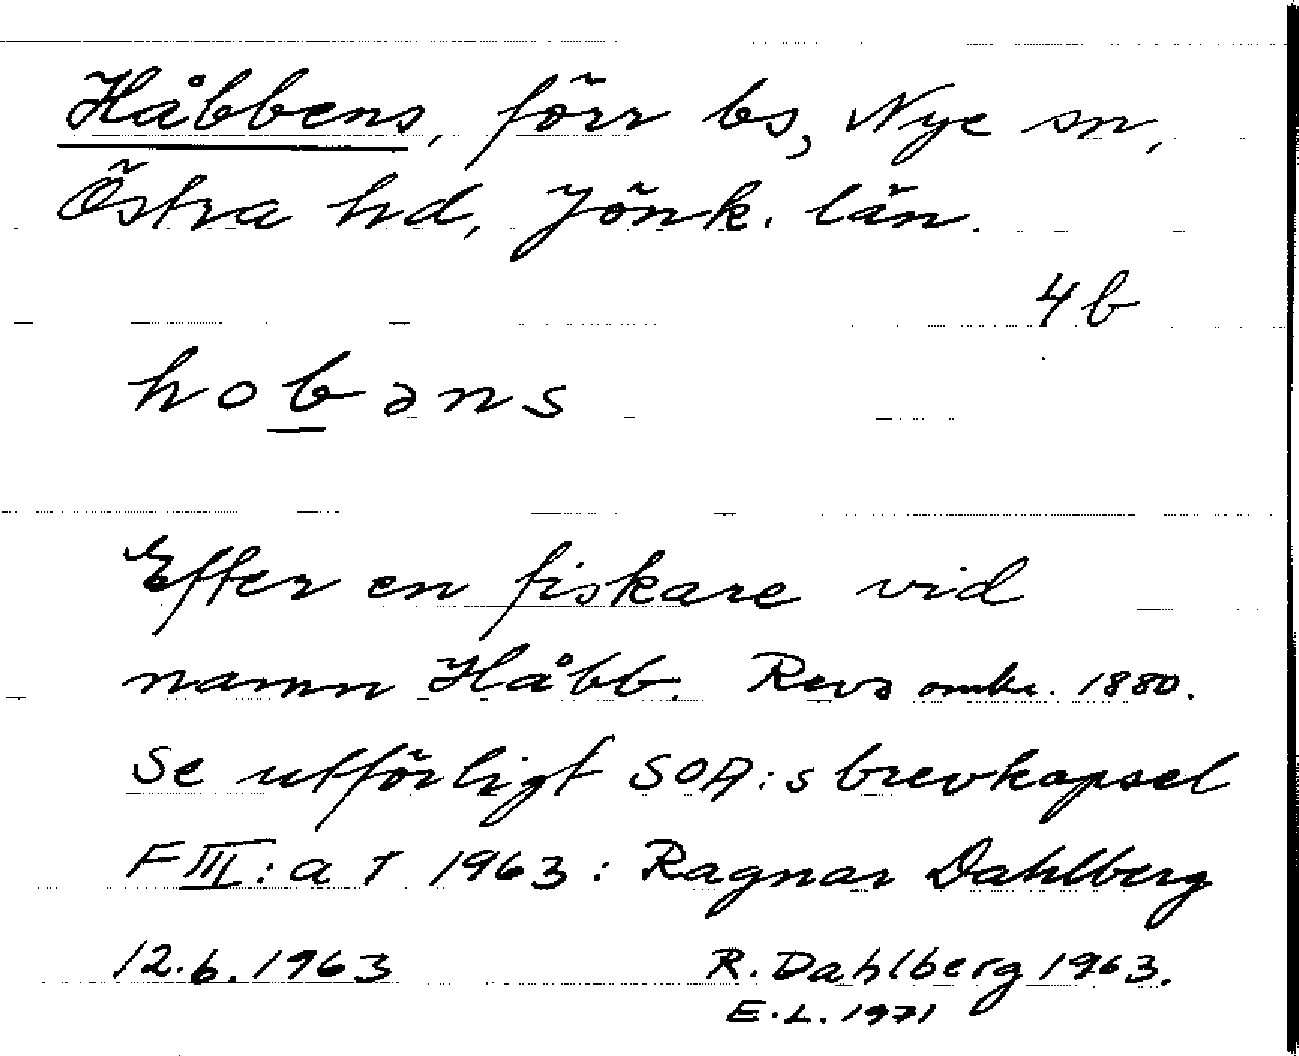 Håbbens, förr bs, Nye sn,
Östra hd, Jönk. län.
4b
hobəns
Efter en fiskare vid
namn Håbb. Revs omkr. 1880.
Se utförligt SOA:s brevkapsel
F III: a 1 1963: Ragnar Dahlberg
12.6.1963
R. Dahlberg 1963.
E.L. 1971